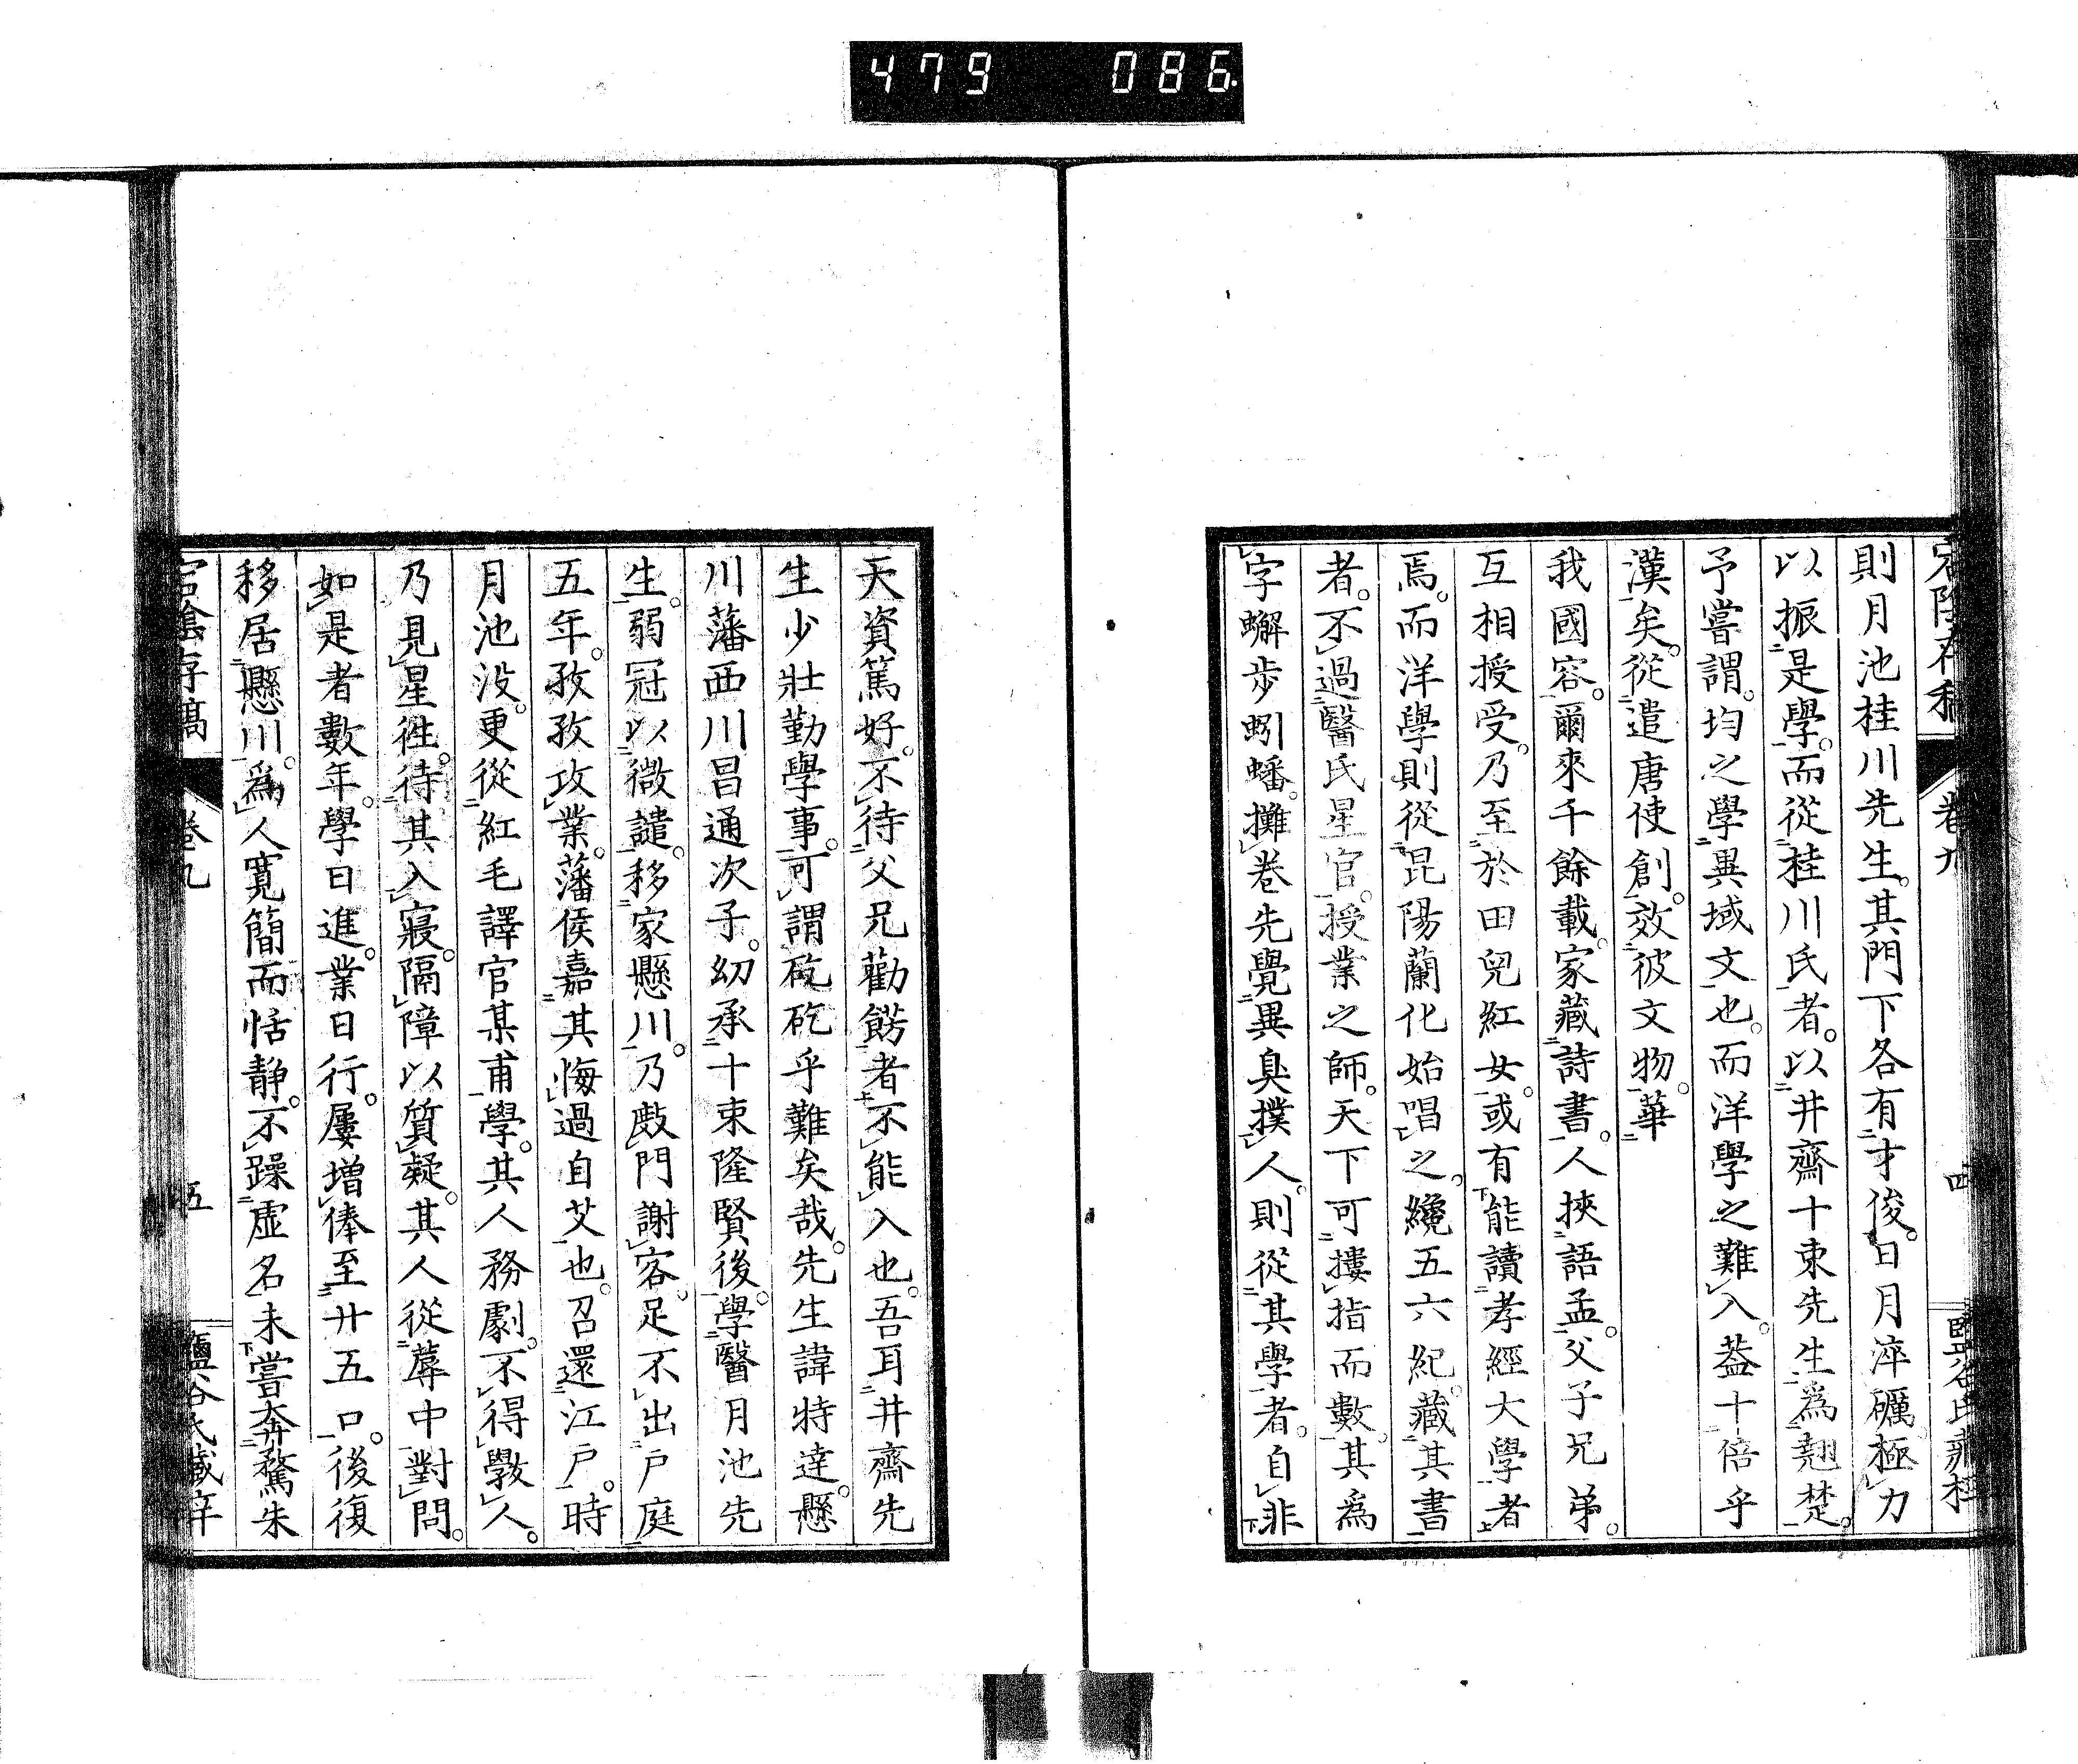 479 086
宕陰存稿 卷九 四 鹽谷氏藏梓
則月池桂川先生。其門下各有才俊。日月淬礪。極力
以振是學。而從桂川氏者。以井齋十束先生爲翹楚。
予嘗謂。均之學異域文也。而洋學之難入。葢十倍乎
漢矣。從遣唐使創。效彼文物。華
我國容。爾來千餘載。家藏詩書。人挾語孟。父子兄弟。
互相授受。乃至於田兒紅女。或有能讀孝經大學者
焉。而洋學則從昆陽蘭化始唱之。纔五六紀。藏其書
者。不過醫氏星官。授業之師。天下可摟指而數。其爲
字蠏步蚓蟠。攤卷先覺異臭撲人。則從其學者。自非
天資篤好。不待父兄勸勞者。不能入也。吾耳井齋先
生少壯勤學事。可謂矻矻乎難矣哉。先生諱特達。懸
川藩西川昌通次子。幼承十束隆賢後。學醫月池先
生。弱冠以微譴。移家懸川。乃敲門謝客。足不出戶庭
五年。孜孜攻業。藩侯嘉其悔過自艾也。召還江戶。時
月池沒。更從紅毛譯官某甫學。其人務劇。不得敎人。
乃見星徃。待其入寢。隔障以質疑。其人從蓐中對問。
如是者數年。學日進。業日行。屢增俸至廿五口。後復
移居懸川。爲人寛簡而恬靜。不躁虛名未嘗奔騖朱
宕陰存稿 卷九 五 鹽谷氏藏梓